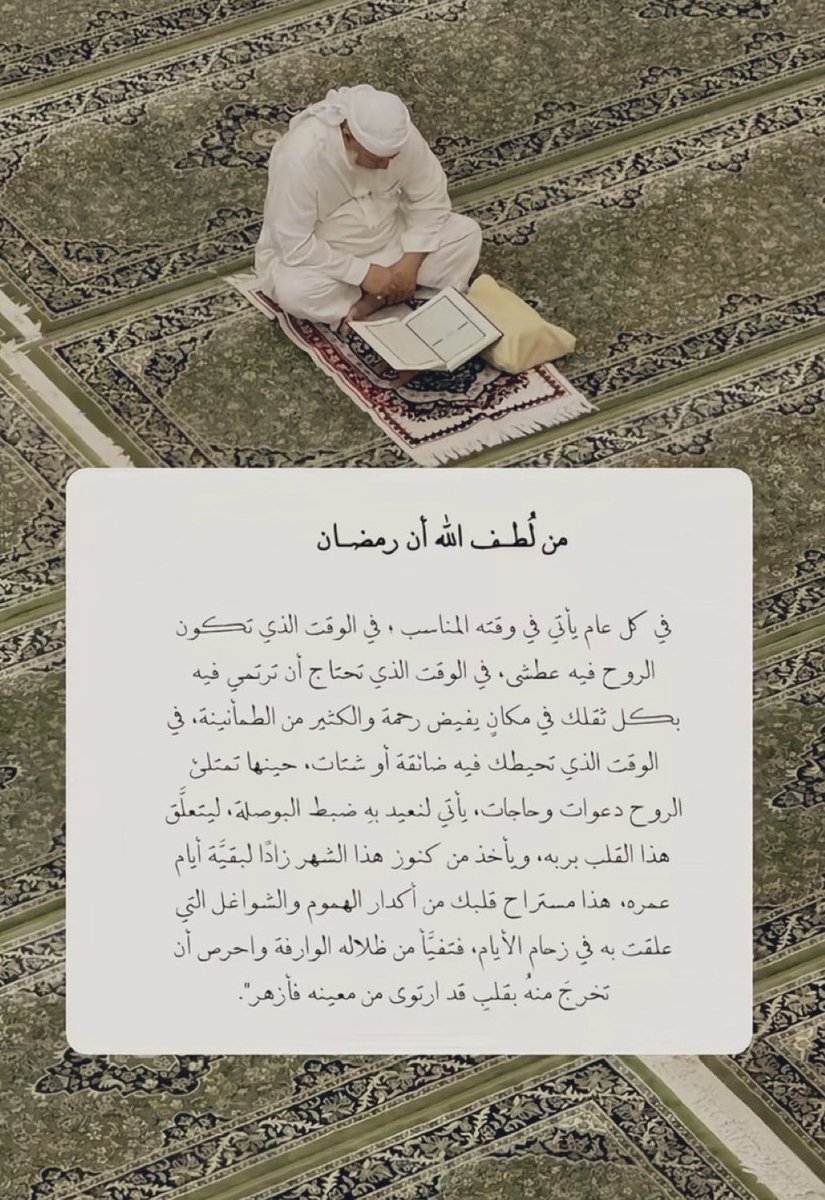 من لُطف الله أن رمضان
في كل عام يأتي في وقته المناسب ، في الوقت الذي تكون
الروح فيه عطشى، في الوقت الذي تحتاج أن ترتمي فيه
بكل ثقلك في مكانٍ يفيض رحمة والكثير من الطمأنينة، في
الوقت الذي تحيطك فيه ضائقة أو شتات، حينها تمتلئ
الروح دعوات وحاجات، يأتي لنعيد بهِ ضبط البوصلة، ليتعلَّق
هذا القلب بربه، ويأخذ من كنوز هذا الشهر زادًا لبقيَّة أيام
عمره، هذا مستراح قلبك من أكدار الهموم والشواغل التي
علقت به في زحام الأيام، فتفيَّأ من ظلاله الوارفة واحرص أن
تخرجَ منهُ بقلبٍ قد ارتوى من معينه فأزهر".